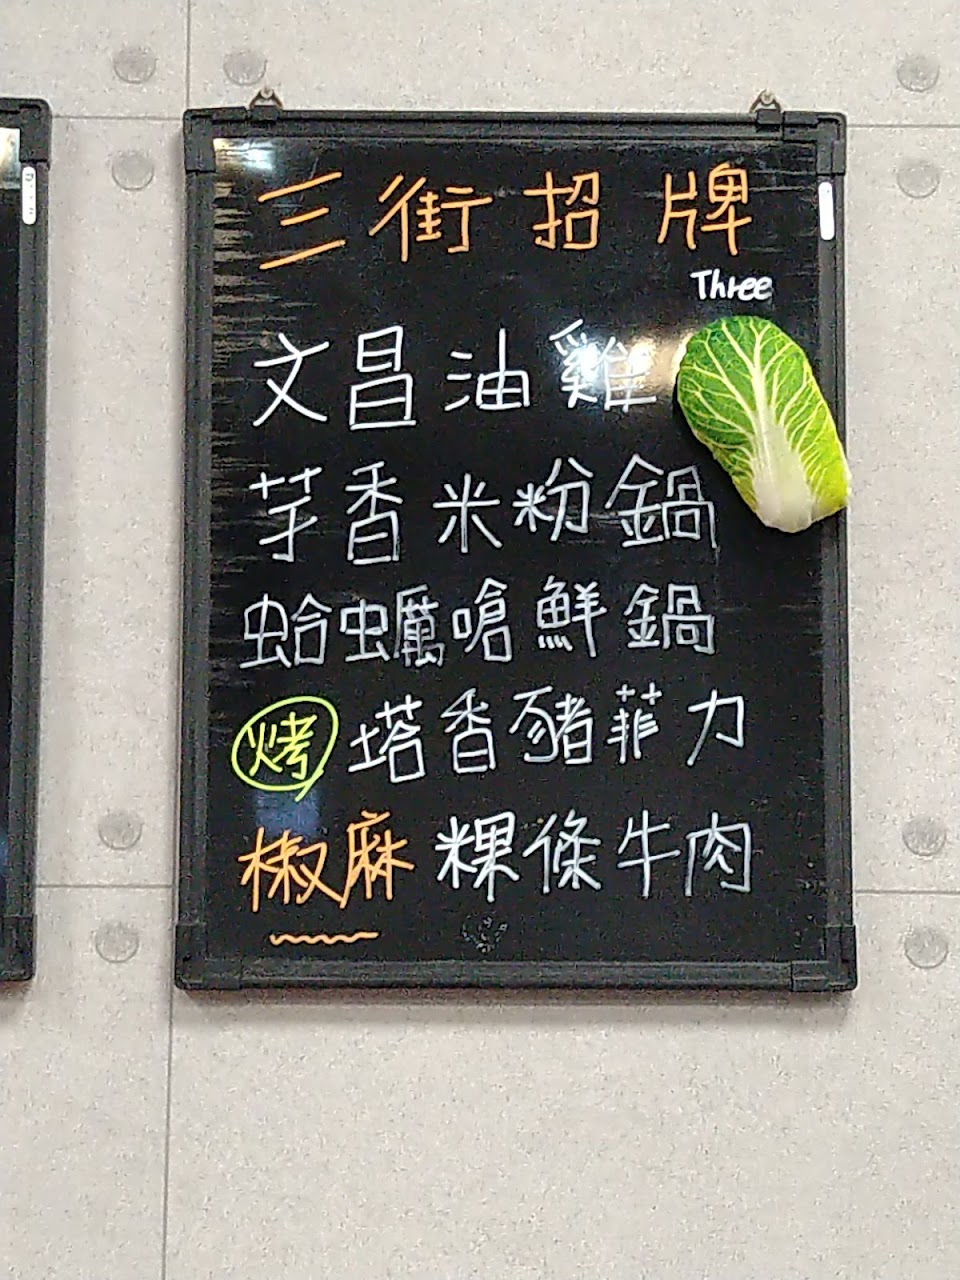 三街招牌
Three
文昌油雞
芋香米粉鍋
蛤蠣嗆鮮鍋
烤 塔香豬菲力
椒麻粿條牛肉